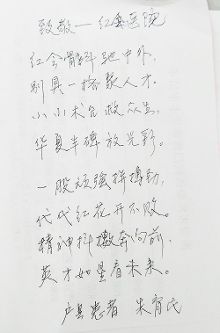 致敬一红会医院
红会骨科驰中外,
别具一格聚人才。
小小术台救众生,
华夏丰碑放光彩。
一股顽强拼搏劲,
代代红花开不败。
精神抖擞奔向前,
英才如星看未来。
户县患者 朱育民